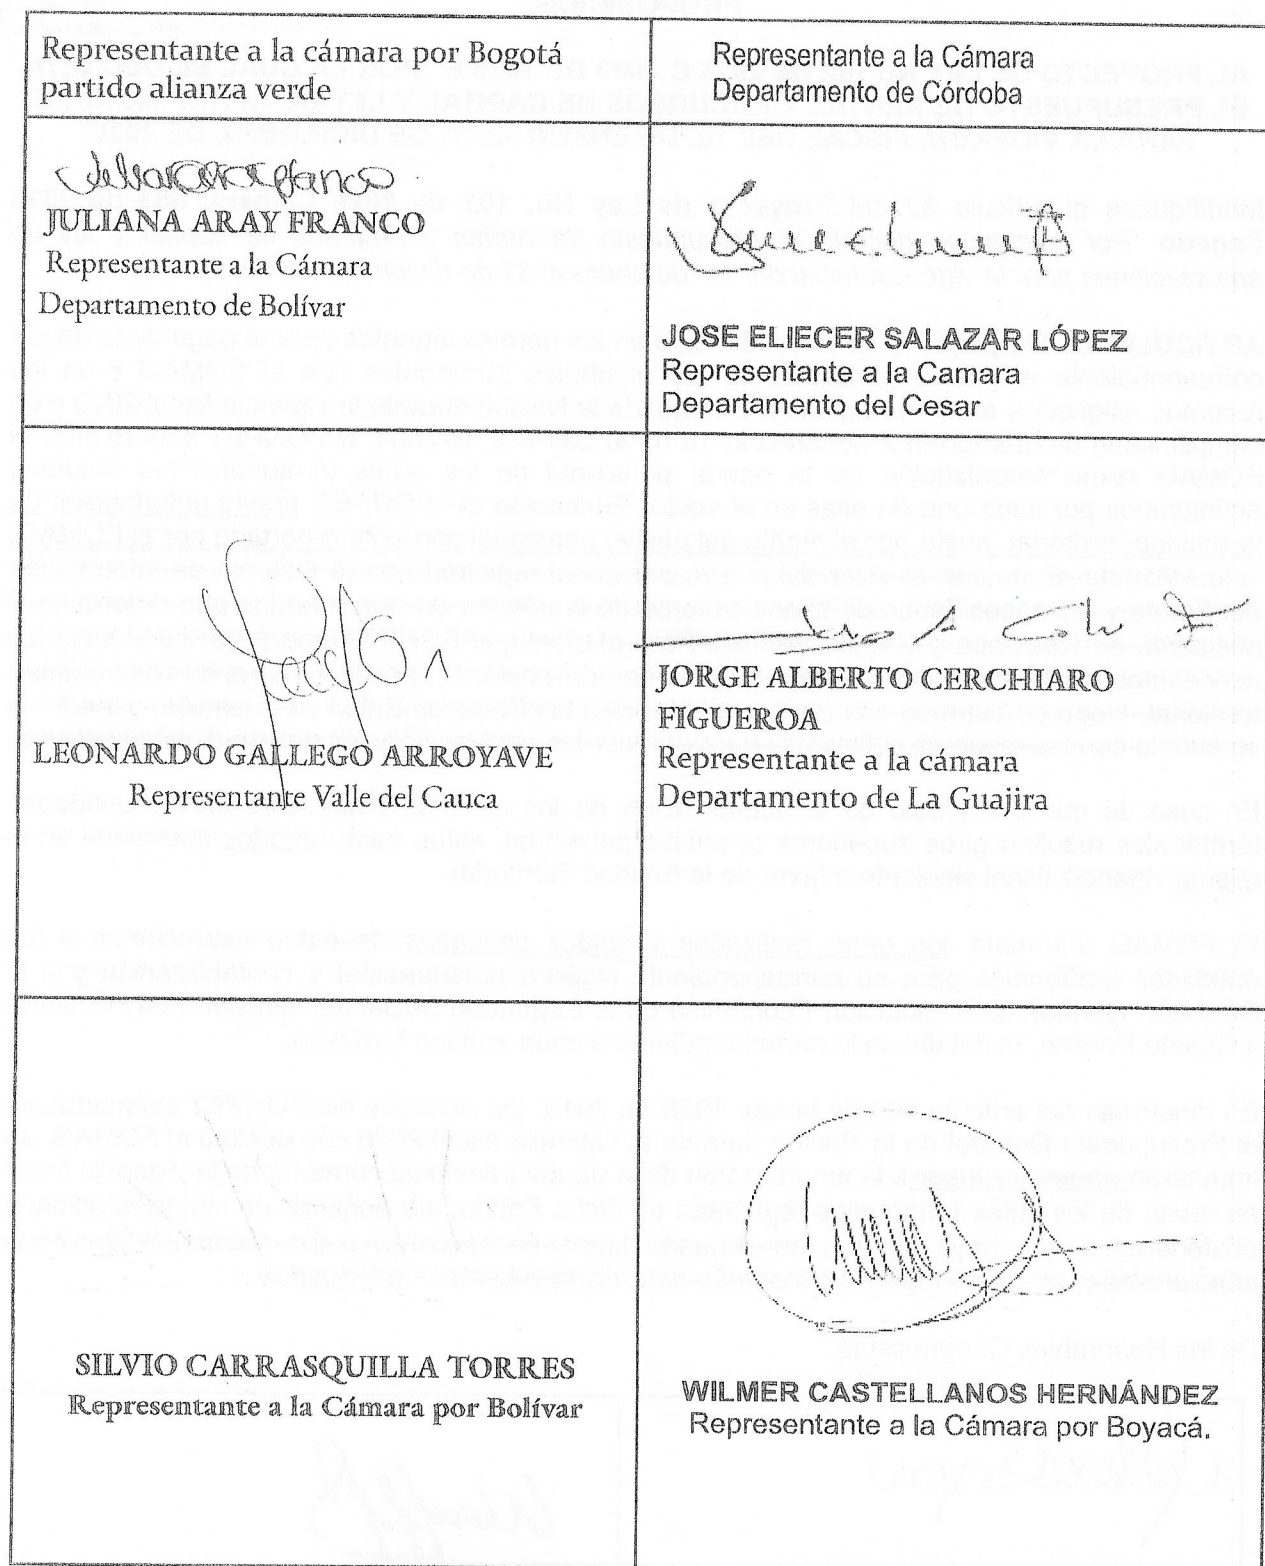 Representante a la cámara por Bogotá
partido alianza verde
Representante a la Cámara
Departamento de Córdoba
JULIANA ARAY FRANCO
Representante a la Cámara
Departamento de Bolívar
JOSE ELIECER SALAZAR LÓPEZ
Representante a la Camara
Departamento del Cesar
LEONARDO GALLEGO ARROYAVE
Representante Valle del Cauca
JORGE ALBERTO CERCHIARO
FIGUEROA
Representante a la cámara
Departamento de La Guajira
SILVIO CARRASQUILLA TORRES
Representante a la Cámara por Bolívar
WILMER CASTELLANOS HERNÁNDEZ
Representante a la Cámara por Boyacá.